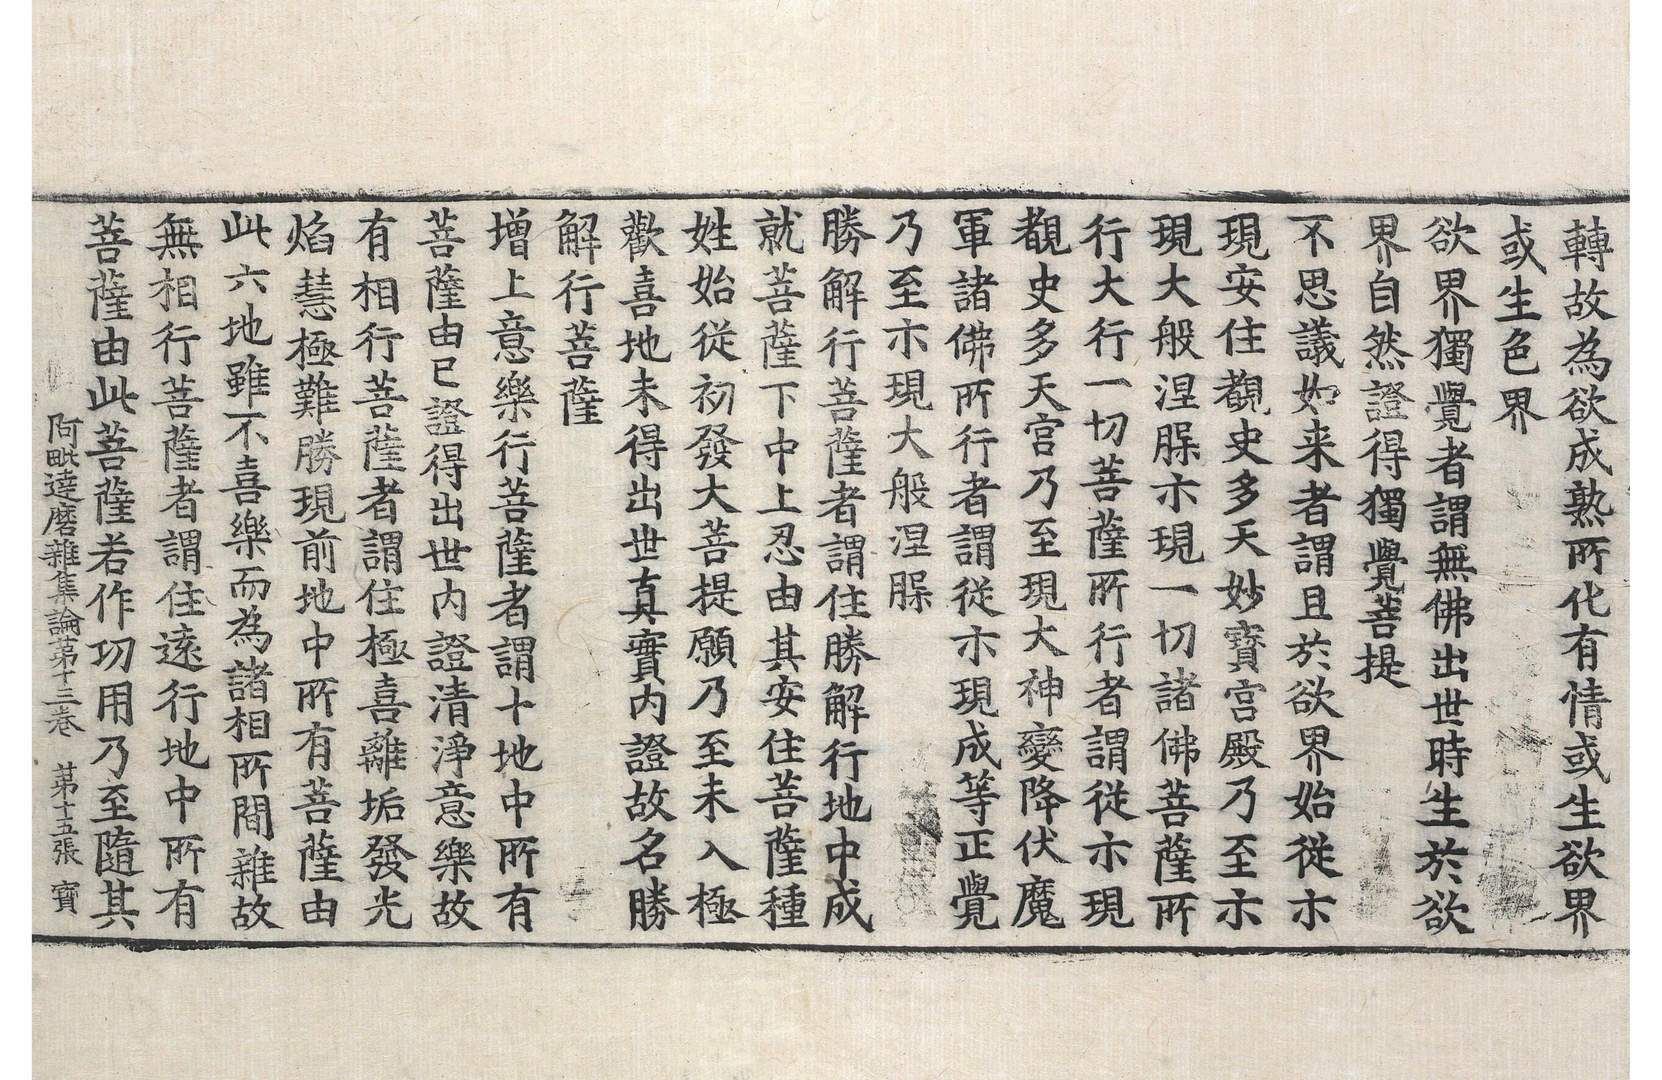 轉故為欲成熟所化有情或生欲界
或生色界
欲界獨覺者謂無佛出世時生於欲
界自然證得獨覺菩提
不思議如来者謂且於欲界始從示
現安住覩史多天妙寳宫殿乃至示
現大般涅槃示現一切諸佛菩薩所
行大行一切菩薩所行者謂從示現
覩史多天宫乃至現大神變降伏魔
軍諸佛所行者謂從示現成等正覺
乃至示現大般涅槃
勝解行菩薩者謂住勝解行地中成
就菩薩下中上忍由其安住菩薩種
姓始從初發大菩提願乃至未入極
歡喜地未得出世真實内證故名勝
解行菩薩
增上意樂行菩薩者謂十地中所有
菩薩由已證得出世内證清淨意樂故
有相行菩薩者謂住極喜離垢發光
焰慧極難勝現前地中所有菩薩由
此六地雖不喜樂而為諸相所間雜故
無相行菩薩者謂住遠行地中所有
菩薩由此菩薩若作功用乃至隨其
阿毗達磨雜集論苐十三卷 苐十五張 寳